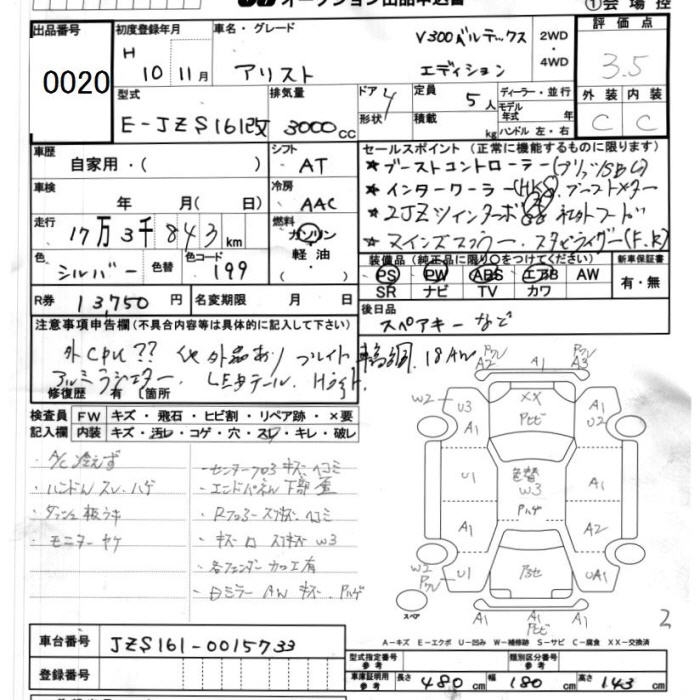 オークション出品申込書 ①会場控
出品番号 0020
初度登録年月 H 10 11月
車名・グレード アリスト V300ベルテックス エディション
2WD・4WD
評価点 3.5
外装 内装
C C
型式 E-JZS161改
排気量 3000cc
ドア 4 形状
定員 5人
積載 kg
ディーラー・並行
モデル年式 年式
ハンドル 左・右
車歴 自家用・( )
シフト AT
セールスポイント (正常に機能するものに限ります)
★ブーストコントローラー(ブリッツSBC)
車検 年 月( 日)
冷房 AAC
★インタークーラー(HKS)ブーストメーター
走行 17万3千843km
燃料 ガソリン 軽油・( )
★2JZツインターボ
★マインズマフラー.スタビライザー(F.R)
色 シルバー 色替
色コード 199
装備品 (純正品に限り○をつけてください)
PS PW ABS エアB AW
SR ナビ TV カワ
新車保証書 有・無
R券 13,750円
名変期限 月 日
後日品 スペアキーなど
注意事項申告欄 (不具合内容等は具体的に記入して下さい)
外CPU?? 他 外品あり ブレイド 車高調. 18AW
アルミラジエター. LEDテール. Hライト.
修復歴 有 (箇所
検査員記入欄
FW キズ・飛石・ヒビ割・リペア跡・×要
内装 キズ・汚レ・コゲ・穴・スレ・キレ・破レ
・A/C冷えず
・ハンドルスレ.ハゲ
・ダッシュ板ウキ
・モニターヤケ
・センターフロアキズヘコミ
・エンドパネル下部歪
・Rフロアースリキズヘコミ
・各フェンダー加工有
・Dミラー AW キズ.Pハゲ
Pクレ A2 A1 Pクレ A3
W2 U3 A1 XX Pヒビ A1 U2
U1 色替 W3 Pハゲ A1
A1 A2
W2 Pクレ U1 Pアセ UA1
スペア
A1 A1 Pヒビ A1
2
A-キズ E-エクボ U-凹み W-補修跡 S-サビ C-腐食 XX-交換済
車台番号 JZS161-0015733
登録番号
型式指定番号 参考
類別区分番号 参考
車庫証明用 参考 長さ 480cm 幅 180cm 高さ 143cm